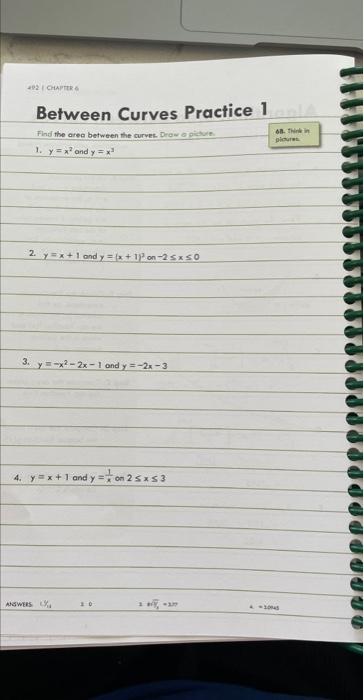 492 | CHAPTER 6
Between Curves Practice 1
Find the area between the curves. Draw a picture.
68. Think in
pictures.
1. y = x² and y = x³
2. y = x + 1 and y = (x + 1)³ on -2 ≤ x ≤ 0
3. y = -x² - 2x - 1 and y = -2x - 3
4. y = x + 1 and y = 1/x on 2 ≤ x ≤ 3
ANSWERS: 1. 1/12 2. 0 3. ≈ 3.77 4. ≈ 3.0945